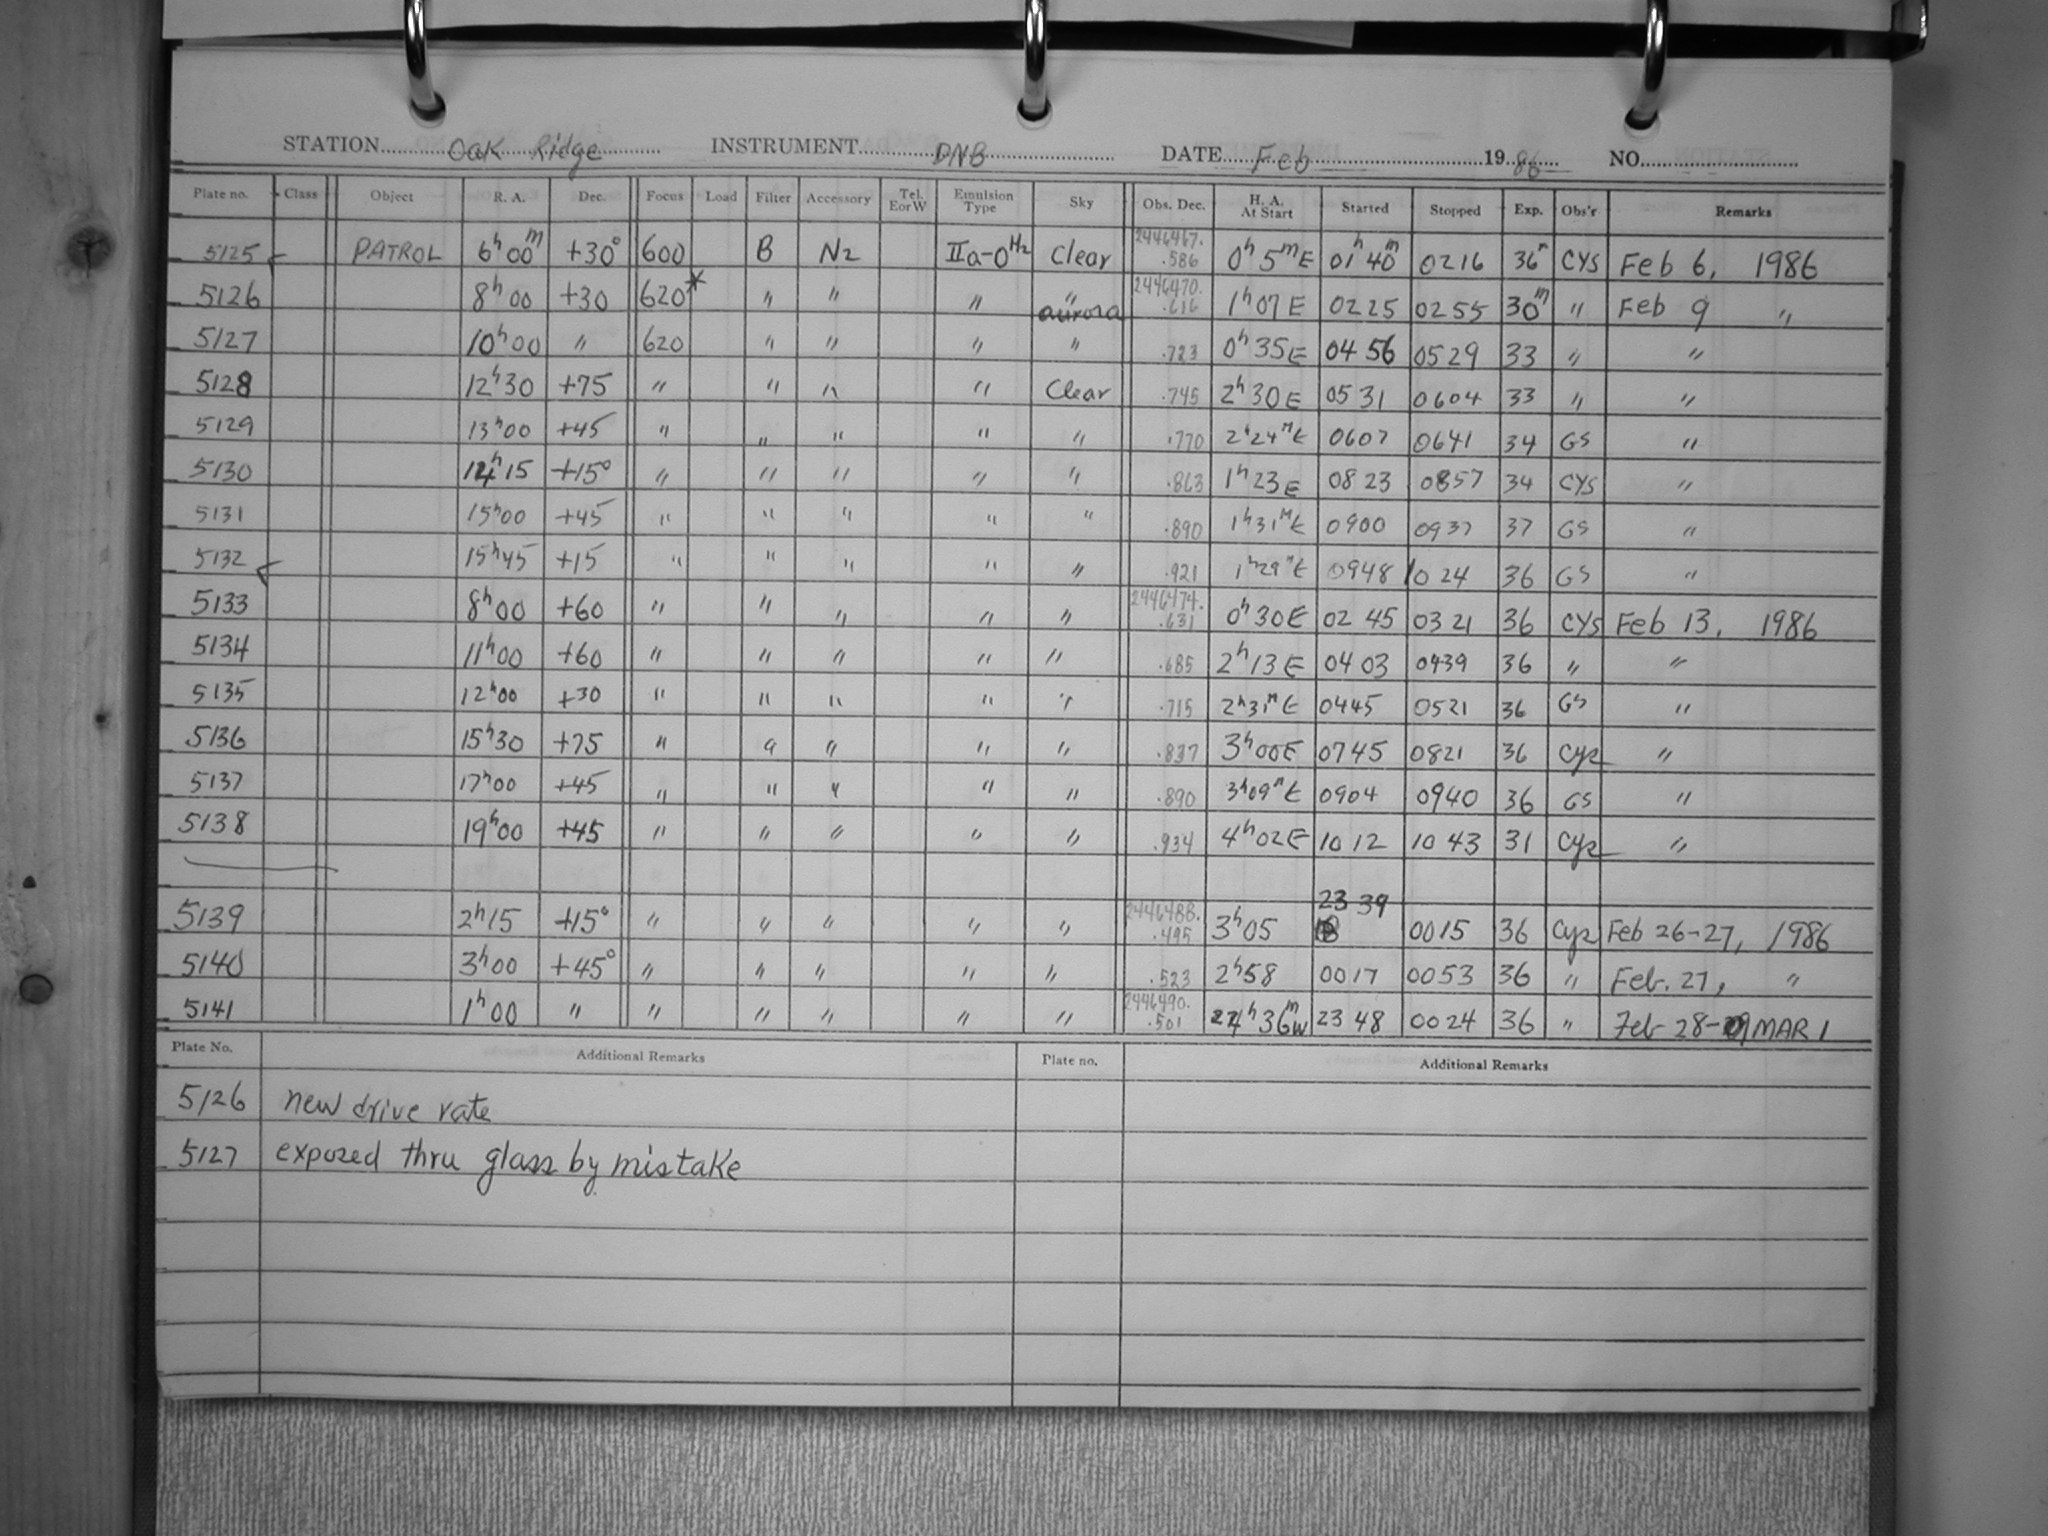 STATION Oak Ridge INSTRUMENT DNB DATE Feb 19 86 NO.
Plate no. Class Object R. A. Dec. Focus Load Filter Accessory Tel. E or W Emulsion Type Sky Obs. Dec. H. A. At Start Started Stopped Exp. Obs'r Remarks
5125 PATROL 6h00m +30° 600 B N2 IIa-O H2 Clear 2446467. .586 0h 5m E 01h 40m 0216 36m CYS Feb 6, 1986
5126 8h00 +30 620* " " " " aurora 2446470. .616 1h07E 0225 0255 30m " Feb 9 "
5127 10h00 " 620 " " " " .723 0h35E 0456 0529 33 " "
5128 12h30 +75 " " " " Clear .745 2h30E 0531 0604 33 " "
5129 13h00 +45 " " " " " .770 2h24mE 0607 0641 34 GS "
5130 14h15 +15° " " " " " .863 1h23E 0823 0857 34 CYS "
5131 15h00 +45 " " " " " .890 1h31mE 0900 0937 37 GS "
5132 15h45 +15 " " " " " .921 1h29mE 0948 1024 36 GS "
5133 8h00 +60 " " " " " 2446474. .631 0h30E 0245 0321 36 CYS Feb 13, 1986
5134 11h00 +60 " " " " " .685 2h13E 0403 0439 36 " "
5135 12h00 +30 " " " " " .715 2h31mE 0445 0521 36 GS "
5136 15h30 +75 " " " " " .837 3h00E 0745 0821 36 Cys "
5137 17h00 +45 " " " " " .890 3h09mE 0904 0940 36 GS "
5138 19h00 +45 " " " " " .934 4h02E 1012 1043 31 Cys "
5139 2h15 +15° " " " " " 2446488. .495 3h05 23 39 0015 36 Cys Feb 26-27, 1986
5140 3h00 +45° " " " " " .523 2h58 0017 0053 36 " Feb. 27, "
5141 1h00 " " " " " " 2446490. .501 24h36mW 2348 0024 36 " Feb 28- MAR 1
Plate No. Additional Remarks Plate no. Additional Remarks
5126 new drive rate
5127 exposed thru glass by mistake